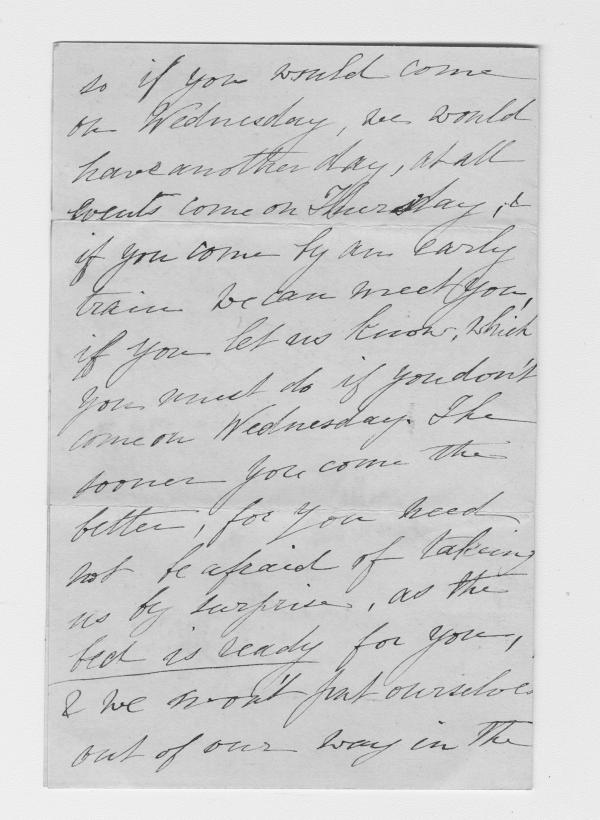 so if you would come
on Wednesday, we would
have another day, at all
events come on Thursday, &
if you come by an early
train we can meet you,
if you let us know, which
you must do if you don't
come on Wednesday. The
sooner you come the
better, for you need
not be afraid of taking
us by surprise, as the
bed is ready for you,
& we won't put ourselves
out of our way in the